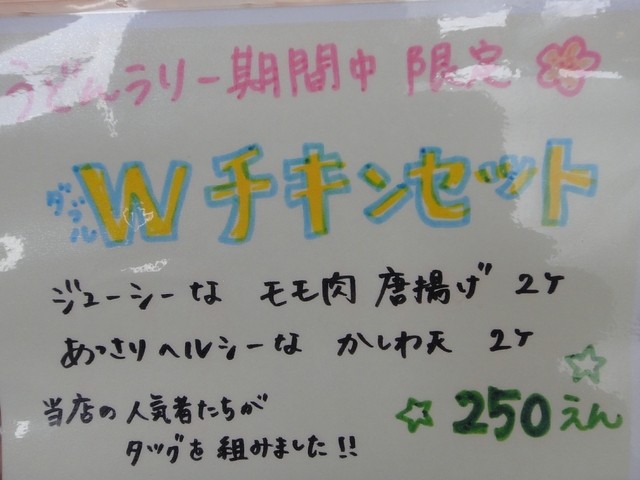 うどんラリー期間中 限定
ダブル
Wチキンセット
ジューシーな モモ肉 唐揚げ 2ケ
あっさりヘルシーな かしわ天 2ケ
当店の人気者たちが
タッグを組みました!!
250えん